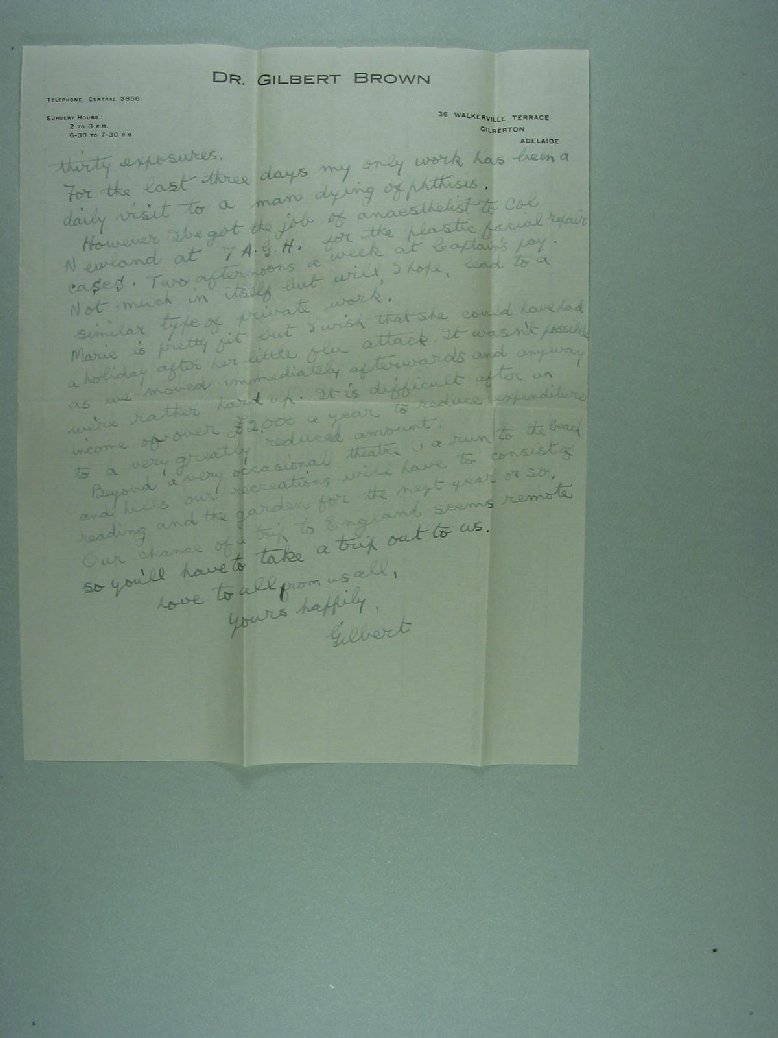 DR. GILBERT BROWN
TELEPHONE CENTRAL 3856.
SURGERY HOURS:
2 TO 3 P.M.
6-30 TO 7-30 P.M.
36 WALKERVILLE TERRACE
GILBERTON
ADELAIDE
thirty exposures.
For the last three days my only work has been a
daily visit to a man dying of phthisis.
However I've got the job of anaesthetist to Col
Newland at 7 A.G.H. for the plastic facial repair
cases. Two afternoons a week at Captain's pay.
Not much in itself but will, I hope, lead to a
similar type of private work.
Marie is pretty fit but I wish that she could have had
a holiday after her little flu attack. It wasn't possible
as we moved immediately afterwards and anyway
we're rather hard up. It is difficult after an
income of over £2,000 a year to reduce expenditure
to a very greatly reduced amount.
Beyond a very occasional theatre & a run to the beach
and hills our recreations will have to consist of
reading and the garden for the next year or so.
Our chance of a trip to England seems remote
so you'll have to take a trip out to us.
Love to all from us all,
Yours happily,
Gilbert